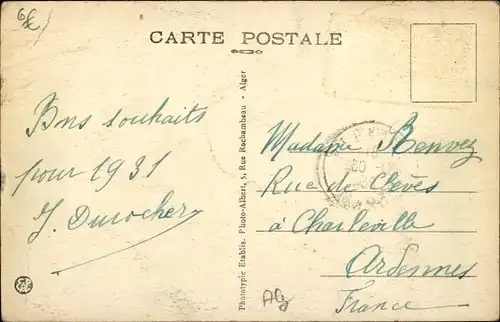 CARTE POSTALE
Bons souhaits
pour 1931
J. Durocher
Phototypie Etablis. Photo-Albert, 5, Rue Rochambeau - Alger
Madame Benvez
Rue de Clèves
à Charleville
Ardennes
France
Alg